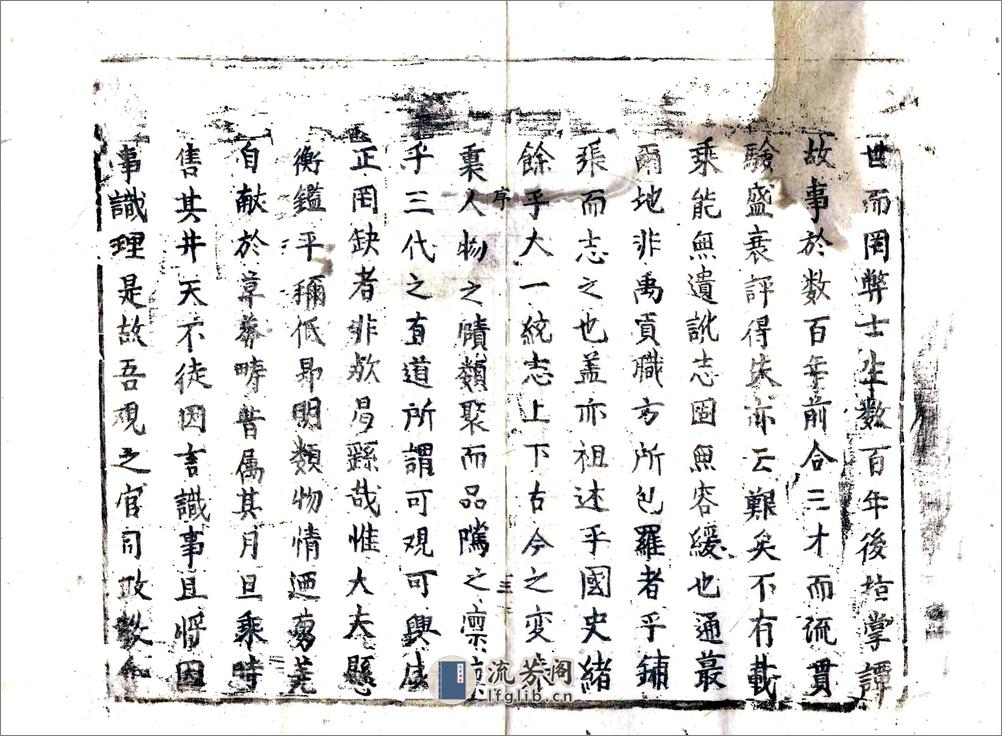 世而罔弊士生数百年後抵掌譚
故事於数百年前合三才而流貫
驗盛衰評得失亦云難矣不有載
乘能無遺訛志固無容緩也通蕞
爾地非禹貢職方所包羅者乎鋪
張而志之也盖亦祖述乎國史緒
餘乎大一統志上下古今之变
稟人物之賾類聚而品隲之凛
序
三
乎三代之直道所謂可观可興
正罔缺者非欤曷繇哉惟大夫懸
衡鑑平稱低昂明類物情迺蒭蕘
自献於草莽時皆属其月旦乘時
售其井天不徒因言識事且将因
事識理是故吾观之官司政教
流芳阁
lfglib.cn